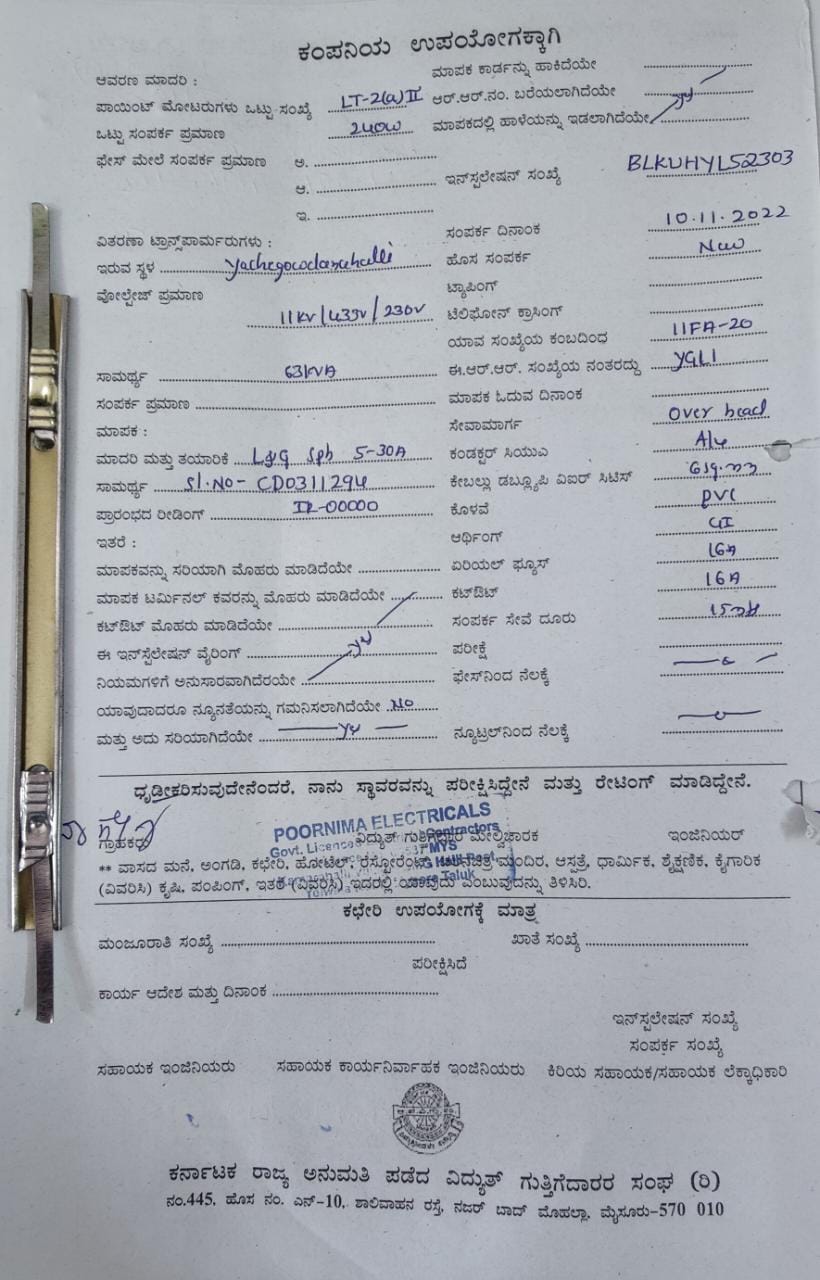 ಕಂಪನಿಯ ಉಪಯೋಗಕ್ಕಾಗಿ
ಆವರಣ ಮಾದರಿ :
ಮಾಪಕ ಕಾರ್ಡನ್ನು ಹಾಕಿದೆಯೇ
ಪಾಯಿಂಟ್ ಮೋಟರುಗಳು ಒಟ್ಟು ಸಂಖ್ಯೆ LT-2(a)II ಆರ್.ಆರ್.ನಂ. ಬರೆಯಲಾಗಿದೆಯೇ
ಒಟ್ಟು ಸಂಪರ್ಕ ಪ್ರಮಾಣ 240W ಮಾಪಕದಲ್ಲಿ ಹಾಳೆಯನ್ನು ಇಡಲಾಗಿದೆಯೇ
ಫೇಸ್ ಮೇಲೆ ಸಂಪರ್ಕ ಪ್ರಮಾಣ ಅ.
ಆ.
ಇನ್‌ಸ್ಟಲೇಷನ್ ಸಂಖ್ಯೆ BLKUHYL52303
ಇ.
ವಿತರಣಾ ಟ್ರಾನ್ಸ್‌ಪಾರ್ಮರುಗಳು :
ಸಂಪರ್ಕ ದಿನಾಂಕ 10.11.2022
ಇರುವ ಸ್ಥಳ Yachegowdanahalli ಹೊಸ ಸಂಪರ್ಕ New
ವೋಲ್ಟೇಜ್ ಪ್ರಮಾಣ 11KV/433V/230V
ಟ್ಯಾಪಿಂಗ್
ಟೆಲಿಫೋನ್ ಕ್ರಾಸಿಂಗ್
ಯಾವ ಸಂಖ್ಯೆಯ ಕಂಬದಿಂಧ 11FA-20
ಸಾಮರ್ಥ್ಯ 63KVA ಈ.ಆರ್.ಆರ್. ಸಂಖ್ಯೆಯ ನಂತರದ್ದು YGL1
ಸಂಪರ್ಕ ಪ್ರಮಾಣ ಮಾಪಕ ಓದುವ ದಿನಾಂಕ
ಮಾಪಕ : ಸೇವಾಮಾರ್ಗ Over head
ಮಾದರಿ ಮತ್ತು ತಯಾರಿಕೆ L&G Sph 5-30A ಕಂಡಕ್ಟರ್ ಸಿಯುಎ
ಸಾಮರ್ಥ್ಯ Sl.No- CD0311294 ಕೇಬಲ್ಲು ಡಬ್ಲ್ಯೂಪಿ ವಿಐರ್ ಸಿಟಿಸ್ 6sq.mm
ಪ್ರಾರಂಭದ ರೀಡಿಂಗ್ IR-00000 ಕೊಳವೆ PVC
ಇತರೆ : ಆರ್ಥಿಂಗ್ GI
ಮಾಪಕವನ್ನು ಸರಿಯಾಗಿ ಮೊಹರು ಮಾಡಿದೆಯೇ ಏರಿಯಲ್ ಫ್ಯೂಸ್ 16A
ಮಾಪಕ ಟರ್ಮಿನಲ್ ಕವರನ್ನು ಮೊಹರು ಮಾಡಿದೆಯೇ ಕಟ್‌ಔಟ್ 16A
ಕಟ್‌ಔಟ್ ಮೊಹರು ಮಾಡಿದೆಯೇ ಸಂಪರ್ಕ ಸೇವೆ ದೂರು
ಈ ಇನ್‌ಸ್ಟೆಲೇಷನ್ ವೈರಿಂಗ್ ಪರೀಕ್ಷೆ
ನಿಯಮಗಳಿಗೆ ಅನುಸಾರವಾಗಿದೆರಯೇ ಫೇಸ್‌ನಿಂದ ನೆಲಕ್ಕೆ
ಯಾವುದಾದರೂ ನ್ಯೂನತೆಯನ್ನು ಗಮನಿಸಲಾಗಿದೆಯೇ NO
ಮತ್ತು ಅದು ಸರಿಯಾಗಿದೆಯೇ ನ್ಯೂಟ್ರಲ್‌ನಿಂದ ನೆಲಕ್ಕೆ
ಧೃಡೀಕರಿಸುವುದೇನೆಂದರೆ, ನಾನು ಸ್ಥಾವರವನ್ನು ಪರೀಕ್ಷಿಸಿದ್ದೇನೆ ಮತ್ತು ರೇಟಿಂಗ್ ಮಾಡಿದ್ದೇನೆ.
POORNIMA ELECTRICALS
ಗ್ರಾಹಕರು ವಿದ್ಯುತ್ ಗುತ್ತಿಗೆದಾರ ಮೇಲ್ವಿಚಾರಕ ಇಂಜಿನಿಯರ್
** ವಾಸದ ಮನೆ, ಅಂಗಡಿ, ಕಛೇರಿ, ಹೋಟೆಲ್, ರೆಸ್ಟೋರೆಂಟ್, ಚಲನಚಿತ್ರ ಮಂದಿರ, ಆಸ್ಪತ್ರೆ, ಧಾರ್ಮಿಕ, ಶೈಕ್ಷಣಿಕ, ಕೈಗಾರಿಕ
(ವಿವರಿಸಿ) ಕೃಷಿ, ಪಂಪಿಂಗ್, ಇತರೆ (ವಿವರಿಸಿ) ಇದರಲ್ಲಿ ಯಾವುದು ಎಂಬುವುದನ್ನು ತಿಳಿಸಿರಿ.
ಕಛೇರಿ ಉಪಯೋಗಕ್ಕೆ ಮಾತ್ರ
ಮಂಜೂರಾತಿ ಸಂಖ್ಯೆ ಖಾತೆ ಸಂಖ್ಯೆ
ಪರೀಕ್ಷಿಸಿದೆ
ಕಾರ್ಯ ಆದೇಶ ಮತ್ತು ದಿನಾಂಕ
ಇನ್‌ಸ್ಟಲೇಷನ್ ಸಂಖ್ಯೆ
ಸಂಪರ್ಕ ಸಂಖ್ಯೆ
ಸಹಾಯಕ ಇಂಜಿನಿಯರು ಸಹಾಯಕ ಕಾರ್ಯನಿರ್ವಾಹಕ ಇಂಜಿನಿಯರು ಕಿರಿಯ ಸಹಾಯಕ/ಸಹಾಯಕ ಲೆಕ್ಕಾಧಿಕಾರಿ
ಕರ್ನಾಟಕ ರಾಜ್ಯ ಅನುಮತಿ ಪಡೆದ ವಿದ್ಯುತ್ ಗುತ್ತಿಗೆದಾರರ ಸಂಘ (ರಿ)
ನಂ.445, ಹೊಸ ನಂ. ಎನ್-10, ಶಾಲಿವಾಹನ ರಸ್ತೆ, ನಜರ್ ಬಾದ್ ಮೊಹಲ್ಲಾ, ಮೈಸೂರು-570 010